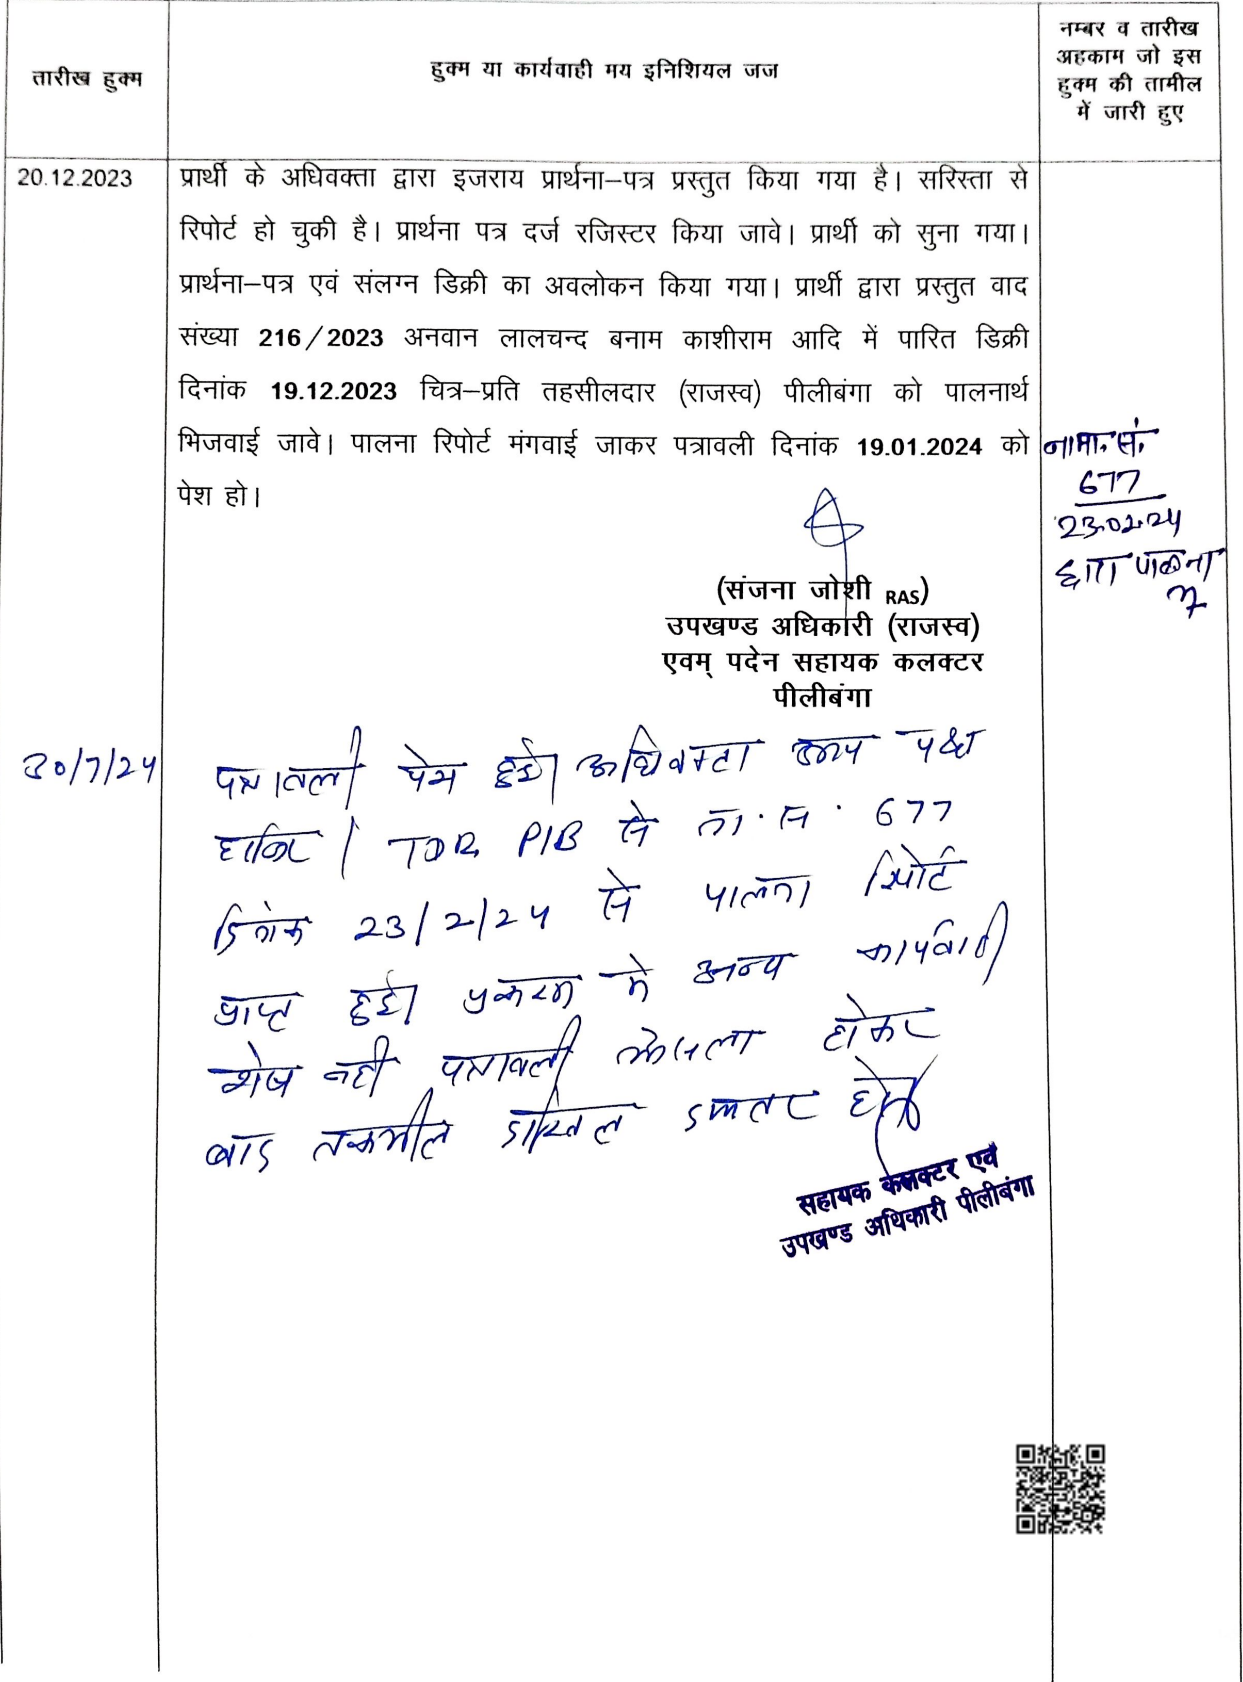 तारीख हुक्म
हुक्म या कार्यवाही मय इनिशियल जज
नम्बर व तारीख
अहकाम जो इस
हुक्म की तामील
में जारी हुए
20.12.2023
प्रार्थी के अधिवक्ता द्वारा इजराय प्रार्थना–पत्र प्रस्तुत किया गया है। सरिस्ता से
रिपोर्ट हो चुकी है। प्रार्थना पत्र दर्ज रजिस्टर किया जावे। प्रार्थी को सुना गया।
प्रार्थना–पत्र एवं संलग्न डिक्री का अवलोकन किया गया। प्रार्थी द्वारा प्रस्तुत वाद
संख्या 216/2023 अनवान लालचन्द बनाम काशीराम आदि में पारित डिक्री
दिनांक 19.12.2023 चित्र–प्रति तहसीलदार (राजस्व) पीलीबंगा को पालनार्थ
भिजवाई जावे। पालना रिपोर्ट मंगवाई जाकर पत्रावली दिनांक 19.01.2024 को
पेश हो।
नामा. सं.
677
23.02.24
द्वारा पालना
(संजना जोशी RAS)
उपखण्ड अधिकारी (राजस्व)
एवम् पदेन सहायक कलक्टर
पीलीबंगा
30/7/24
पत्रावली पेश हुई। अधिवक्ता पक्ष
हाजिर। TDR PIB से ना. स. 677
दिनांक 23/2/24 से पालना रिपोर्ट
प्राप्त हुई। प्रकरण मे अन्य कार्यवाही
शेष नही पत्रावली फैसला होकर
बाद तकमील दाखिल दफ्तर हो
सहायक कलक्टर एवं
उपखण्ड अधिकारी पीलीबंगा